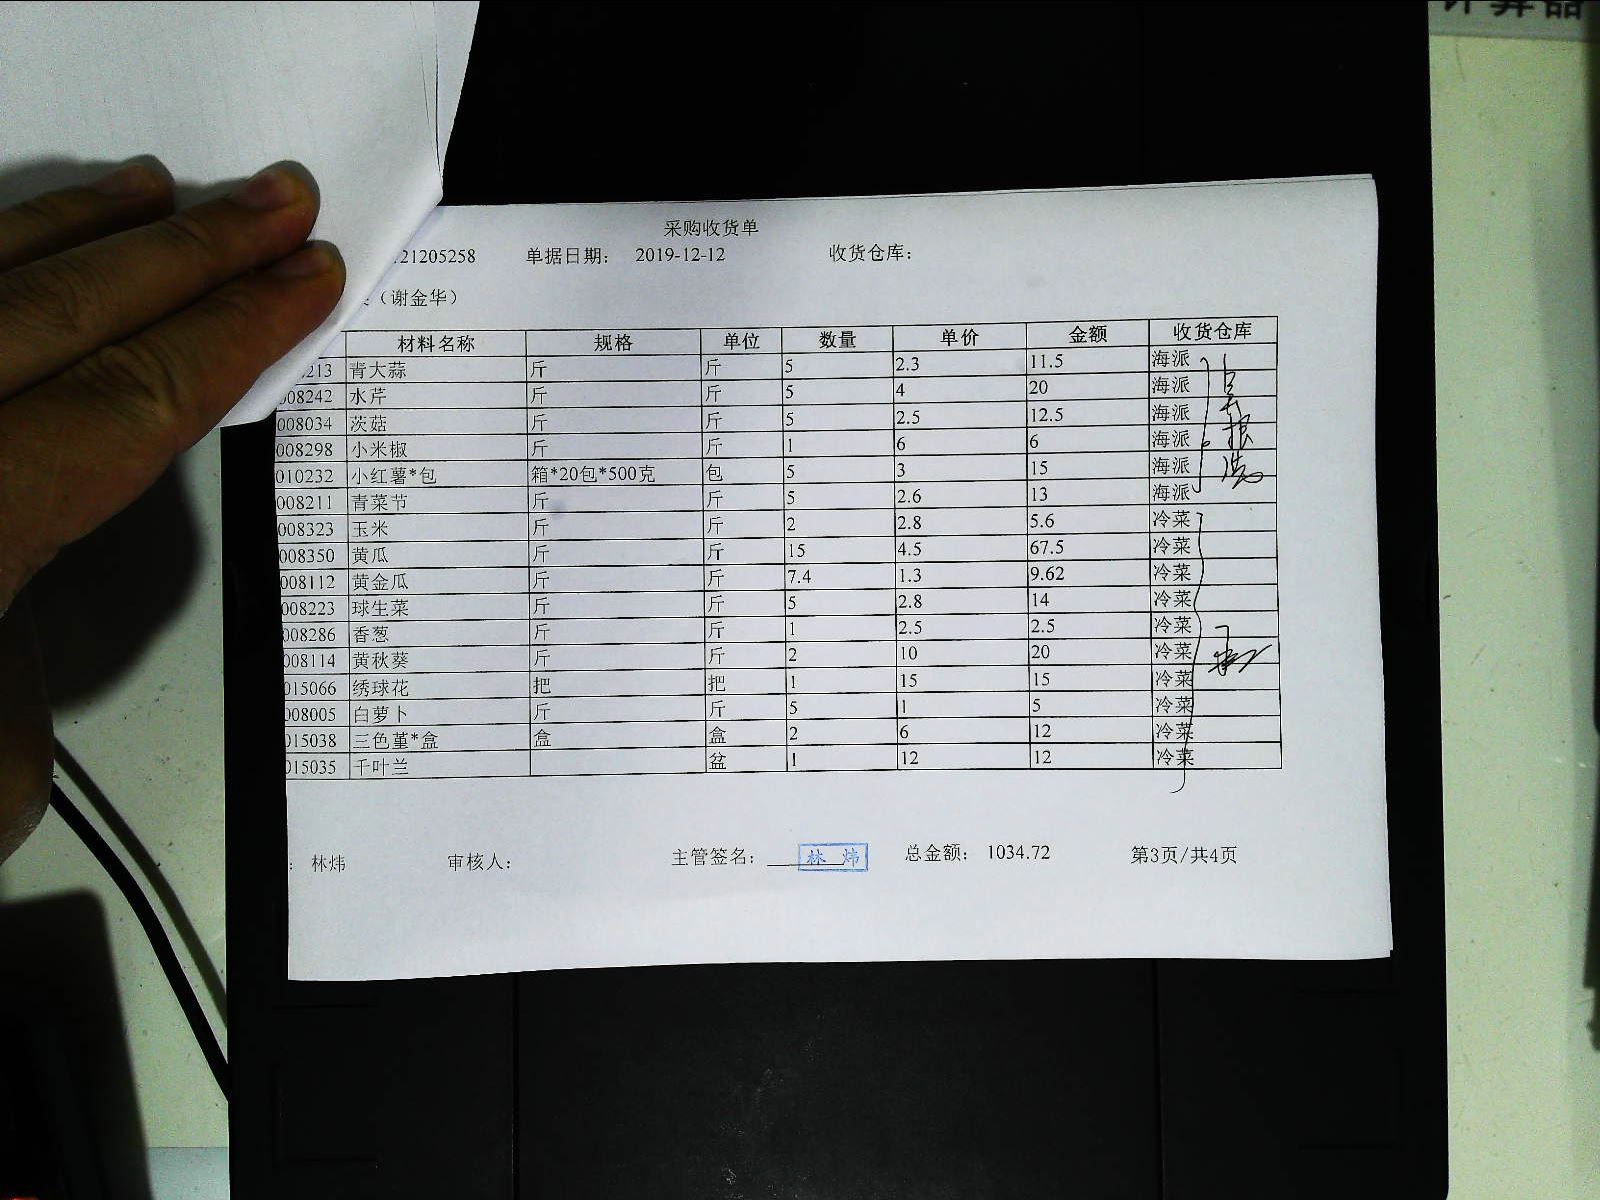 计算器
采购收货单
21205258 单据日期： 2019-12-12 收货仓库：
（谢金华）
材料名称 规格 单位 数量 单价 金额 收货仓库
213 青大蒜 斤 斤 5 2.3 11.5 海派
008242 水芹 斤 斤 5 4 20 海派
008034 茨菇 斤 斤 5 2.5 12.5 海派
008298 小米椒 斤 斤 1 6 6 海派
010232 小红薯*包 箱*20包*500克 包 5 3 15 海派
008211 青菜节 斤 斤 5 2.6 13 海派
008323 玉米 斤 斤 2 2.8 5.6 冷菜
008350 黄瓜 斤 斤 15 4.5 67.5 冷菜
008112 黄金瓜 斤 斤 7.4 1.3 9.62 冷菜
008223 球生菜 斤 斤 5 2.8 14 冷菜
008286 香葱 斤 斤 1 2.5 2.5 冷菜
008114 黄秋葵 斤 斤 2 10 20 冷菜
015066 绣球花 把 把 1 15 15 冷菜
008005 白萝卜 斤 斤 5 1 5 冷菜
015038 三色堇*盒 盒 盒 2 6 12 冷菜
015035 千叶兰 盆 1 12 12 冷菜
: 林炜 审核人： 主管签名： 林炜 总金额： 1034.72 第3页/共4页